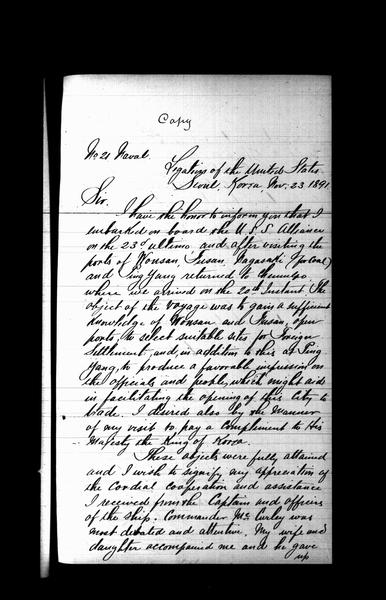 Copy
No 21 Naval.
Legation of the United States
Seoul, Korea, Nov. 23 1891
Sir.
I have the honor to inform you that I
embarked on board the U.S.S. Alliance
on the 23d ultimo and after visiting the
ports of Wonsan, Fusan, Nagasaki (for coal)
and Ping Yang returned to Chemulpo
where we arrived on the 20th Instant. The
object of the voyage was to gain a sufficient
knowledge of Wonsan and Fusan, open
ports, to select suitable sites for Foreign
Settlement, and, in addition to this at Ping
Yang, to produce a favorable impression on
the officials and people, which might aid
in facilitating the opening of this City to
trade. I desired also by the manner
of my visit to pay a compliment to His
Majesty the King of Korea.
These objects were fully attained
and I wish to signify my appreciation of
the Cordial Cooperation and assistance
I received from the Captain and officers
of the ship. Commander Mc Curley was
most devoted and attentive. My wife and
daughter accompanied me and he gave
up